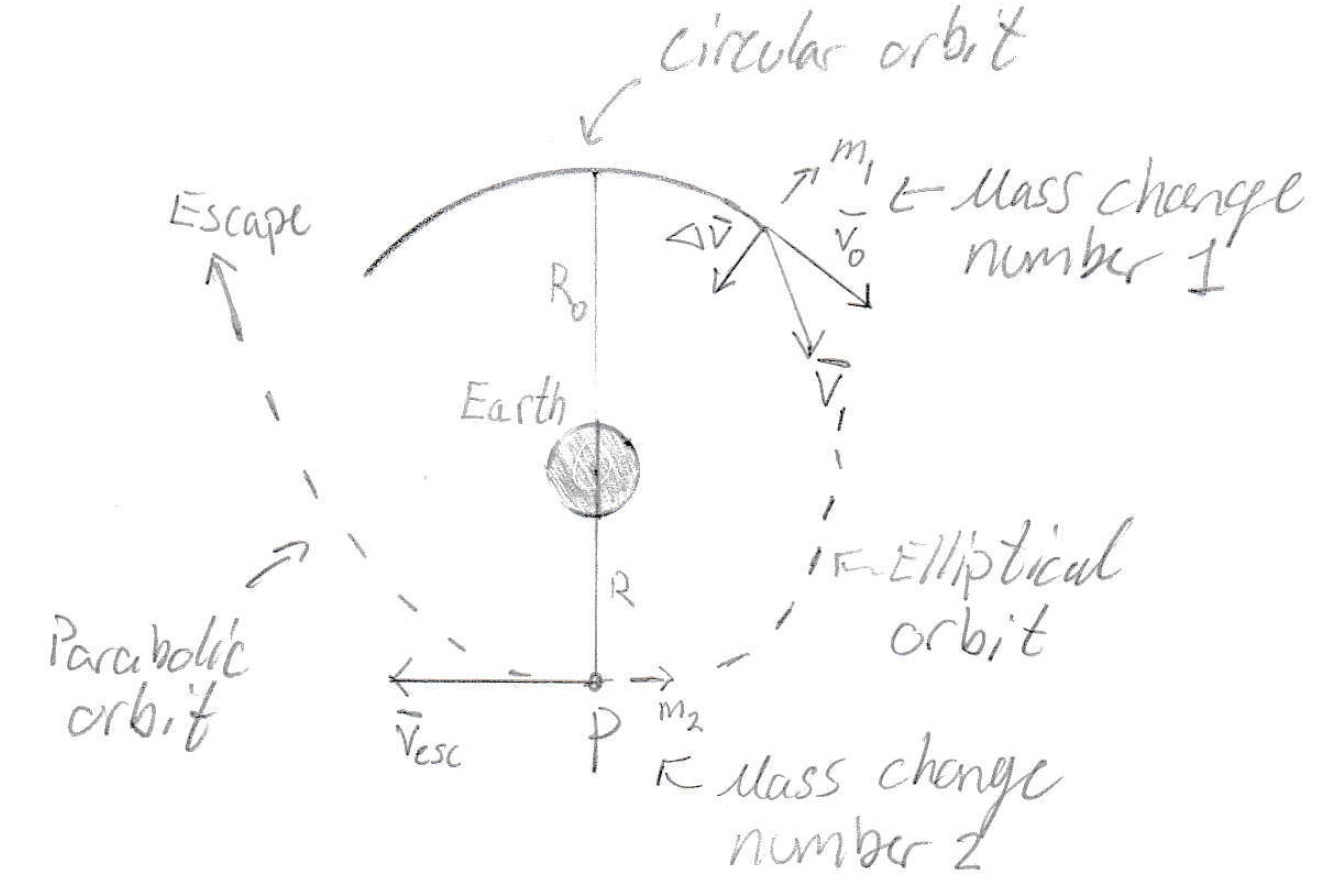 Circular orbit
Escape
m₁
← Mass change
number 1
Δv̄
v̄₀
R₀
Earth
V̄
← Elliptical
orbit
R
Parabolic
orbit
v̄esc
P
m₂
← Mass change
number 2